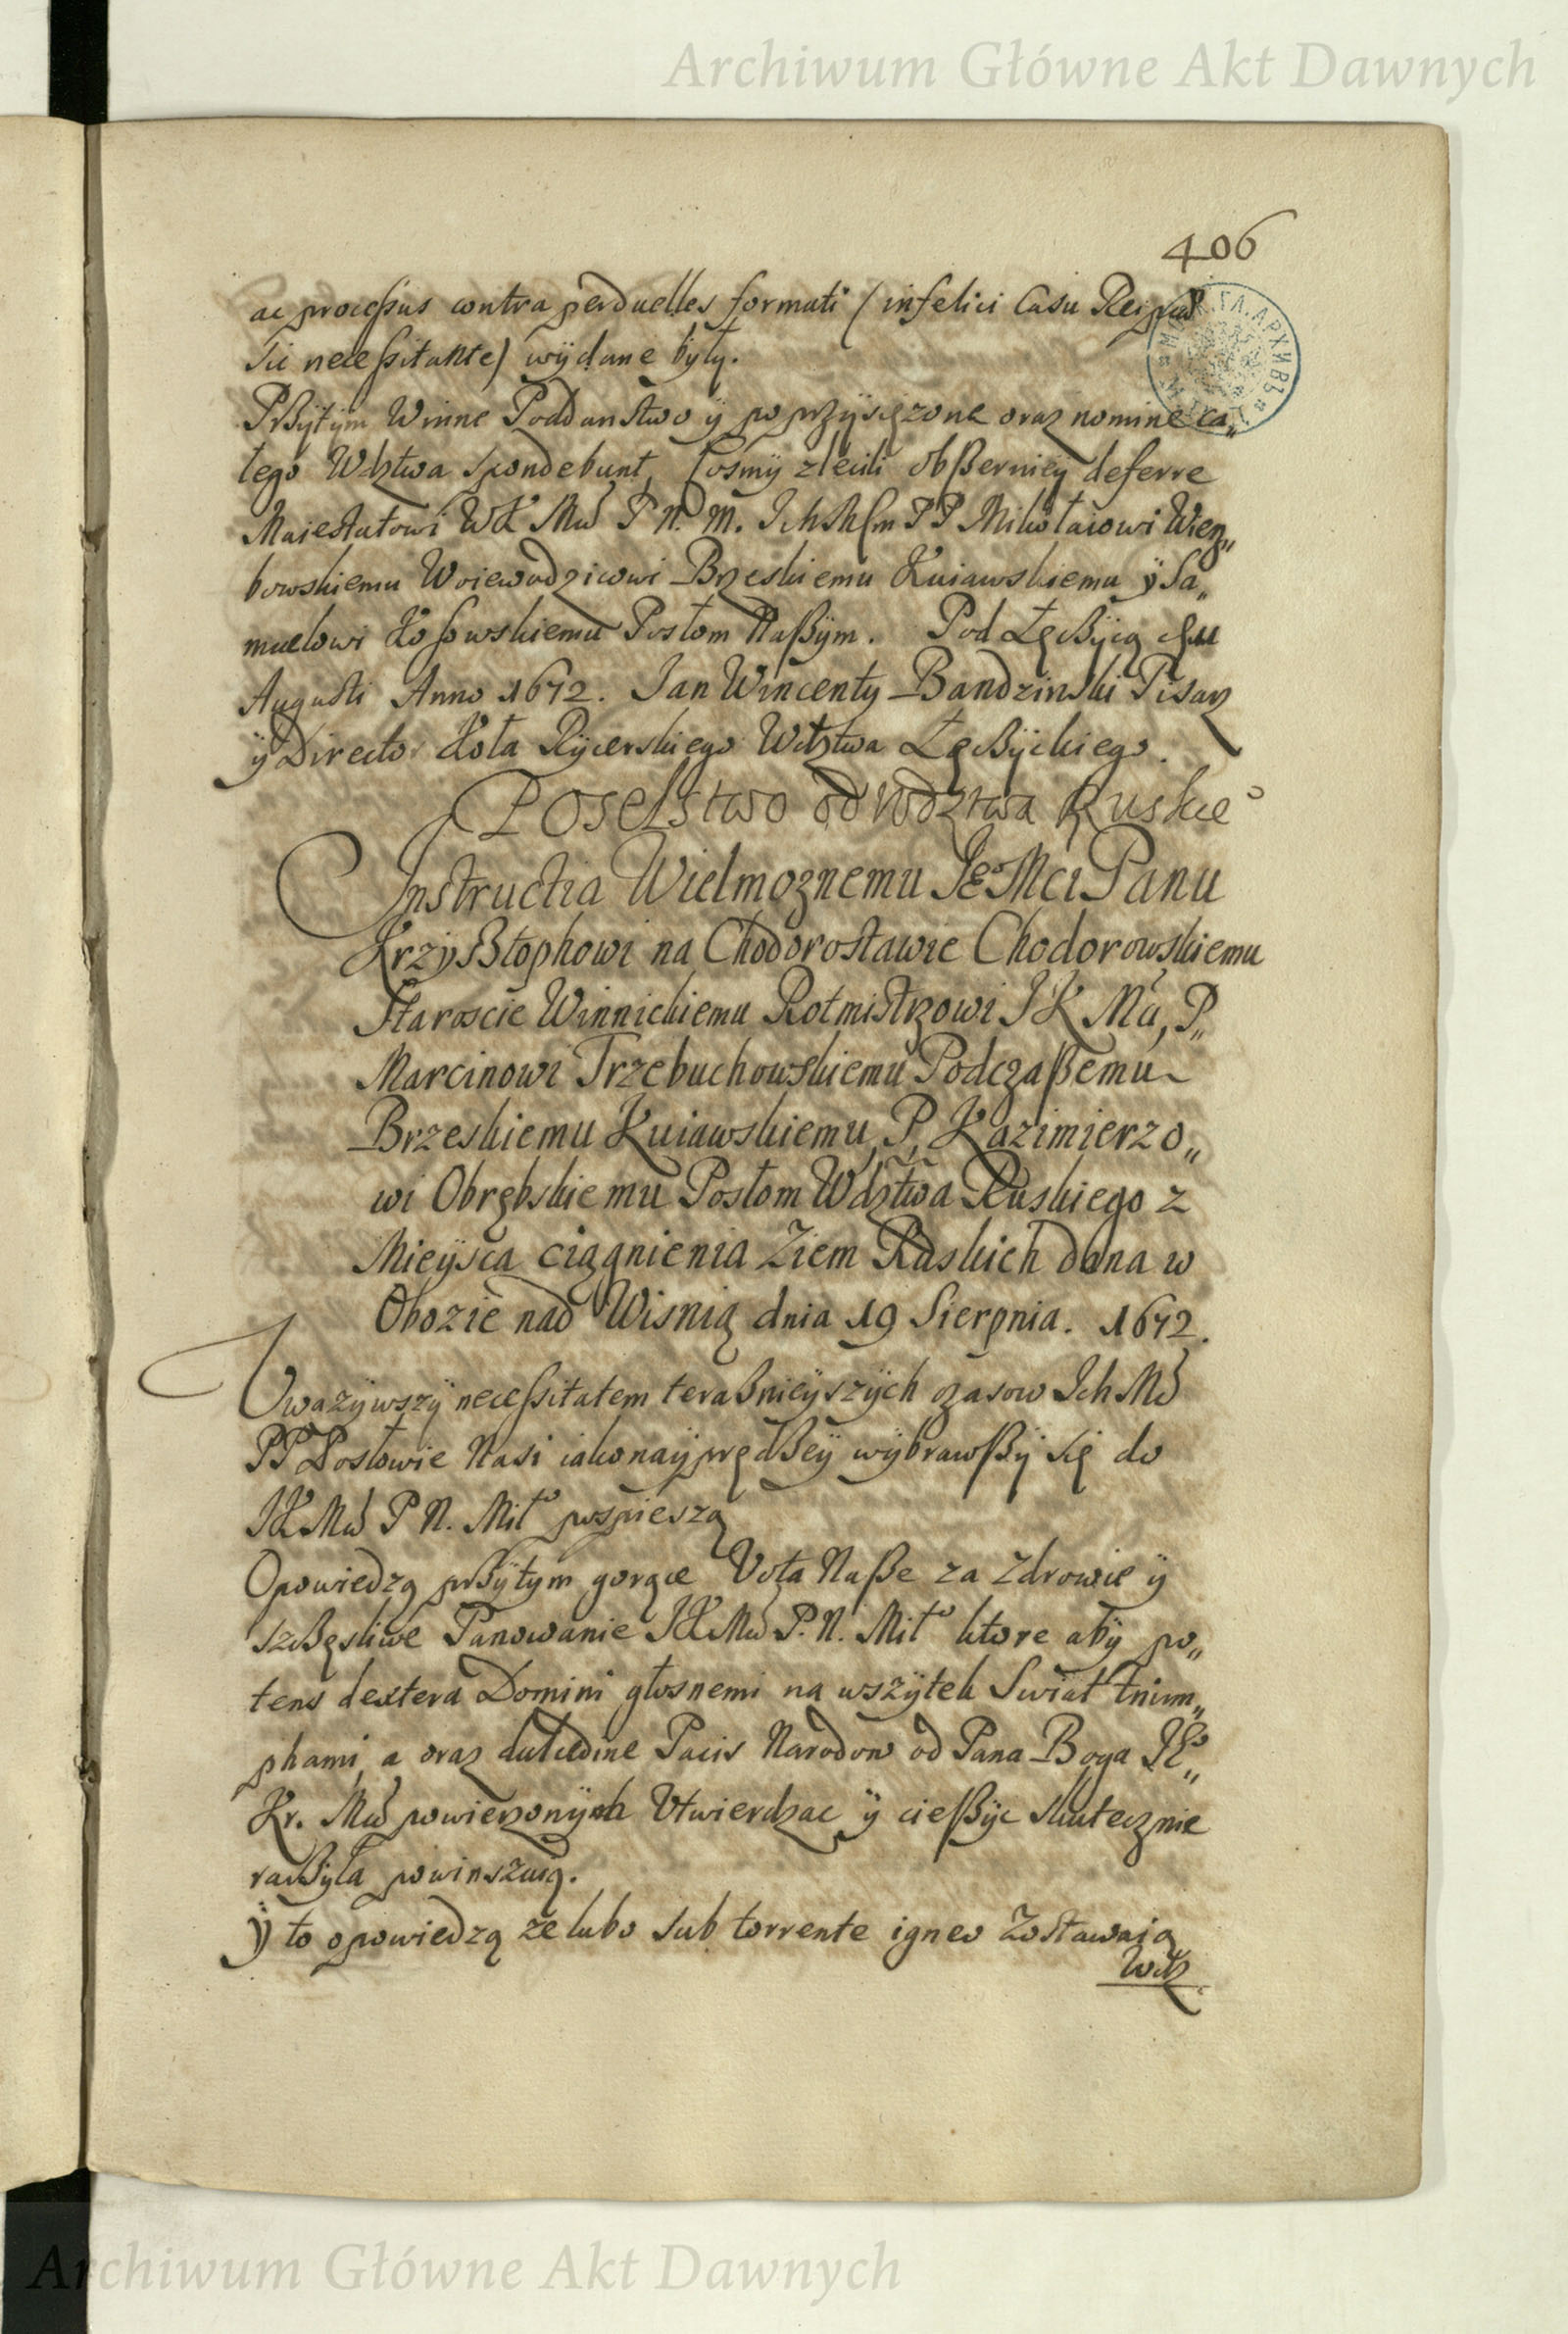 Archiwum Główne Akt Dawnych
406
ac processus contra perduelles formati (infelici Casu Reipub
sic necessitante) wÿdane bÿłÿ.
Przÿtÿm Winne Poddanstwo ÿ poprzÿsięzone oraz nomine ca„
łego Wdztwa spondebunt, cosmÿ zlecili obszernieÿ deferre
Maiestatowi WK Mci P. N. M. Ich Mści PP Mikołaiowi Wierz„
bowskiemu Woiewodzicowi Brzeskiemu Kuiawskiemu ÿ Sa„
muelowi Kossowskiemu Posłom Naszÿm. Pod Łęczÿcą
Augusti Anno 1672. Jan Wincenty Bandzinski Pisarz
ÿ Director Koła Rÿcerskiego Wdztwa Łęczÿckiego.
Poselstwo od Wdztwa Ruskieo
Instructia Wielmoznemu Jeo Mci Panu
Krzysztophowi na Chodorostawie Chodorowskiemu
Staroscie Winnickiemu Rotmistrzowi J K Mci, P„
Marcinowi Trzebuchowskiemu Podczaszemu
Brzeskiemu Kuiawskiemu, P, Kazimierzo„
wi Obrębskiemu Posłom Wdztwa Ruskiego z
Mieÿsca ciągnienia Ziem Ruskich dana w
Obozie nad Wisnią dnia 19 Sierpnia. 1672.
Uwazÿwszÿ necessitatem terasznieÿszÿch czasow Ich Mć
PP Posłowie Nasi iakonaÿprędszeÿ wÿbrawszÿ się do
JKMci P N. Miło pospieszą
Opowiedzą przÿtym gorące Vota Nasze za Zdrowie ÿ
szczęsliwe Panowanie JKMci P. N. Miło ktore abÿ po„
tens dextera Domini głosnemi na wszÿtek Swiat trium„
phami, a oraz dulcedine Pacis Narodow od Pana Boga Jeo„
Kr. Mci powierzonÿch Utwierdzac ÿ cieszÿc skutecznie
raczÿła powinszuią.
Ÿ to opowiedzą ze lubo sub torrente igneo Zostawaią
Wdz
Archiwum Główne Akt Dawnych